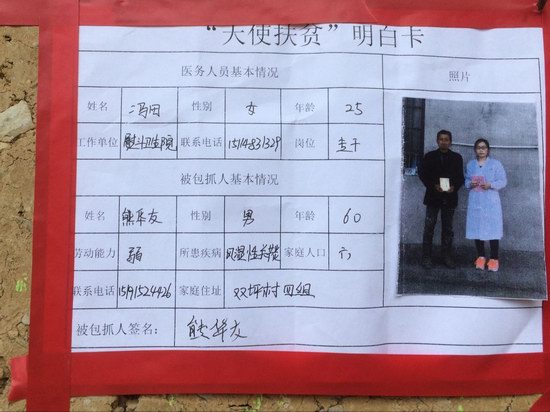 “天使扶贫”明白卡
医务人员基本情况 照片
姓名 冯田 性别 女 年龄 25
工作单位 熨斗卫生院 联系电话 岗位
被包抓人基本情况
姓名 熊华友 性别 男 年龄 60
劳动能力 弱 所患疾病 风湿性关节炎 家庭人口 六
联系电话 15991524426 家庭住址 双坪村四组
被包抓人签名： 熊华友